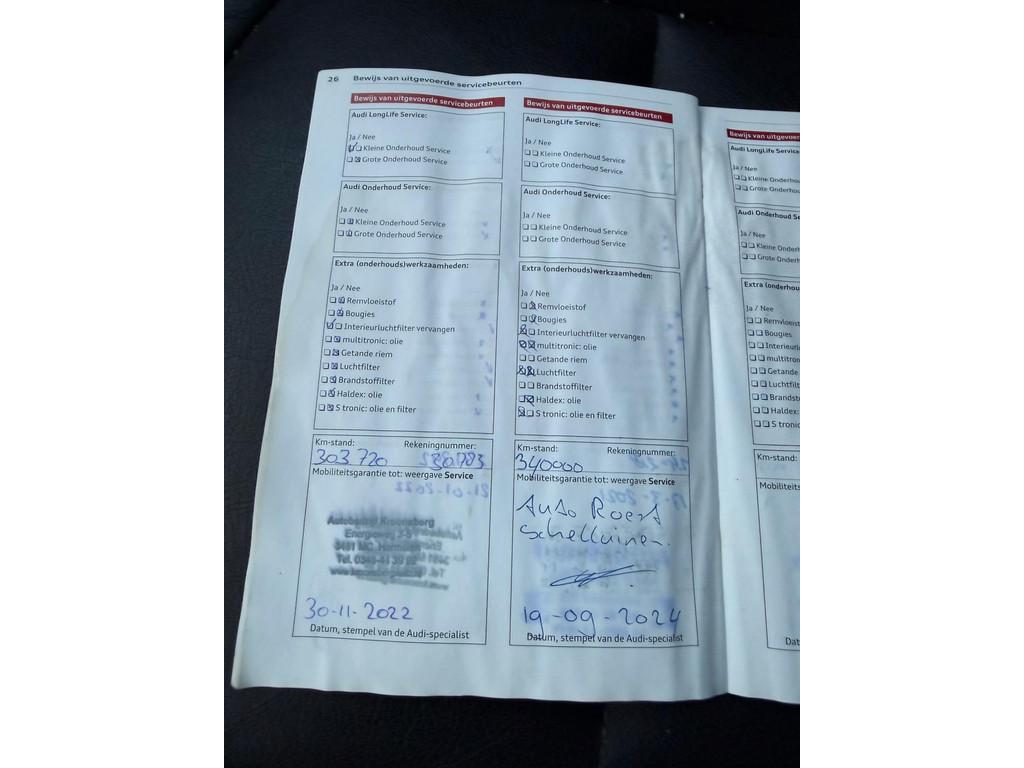 26 Bewijs van uitgevoerde servicebeurten
Bewijs van uitgevoerde servicebeurten
Audi LongLife Service:
Ja / Nee
Kleine Onderhoud Service
Grote Onderhoud Service
Audi Onderhoud Service:
Ja / Nee
Kleine Onderhoud Service
Grote Onderhoud Service
Extra (onderhouds)werkzaamheden:
Ja / Nee
Remvloeistof
Bougies
Interieurluchtfilter vervangen
multitronic: olie
Getande riem
Luchtfilter
Brandstoffilter
Haldex: olie
S tronic: olie en filter
Km-stand: Rekeningnummer:
303720
Mobiliteitsgarantie tot: weergave Service
Autobedrijf Kroonsberg
30-11-2022
Datum, stempel van de Audi-specialist
Bewijs van uitgevoerde servicebeurten
Audi LongLife Service:
Ja / Nee
Kleine Onderhoud Service
Grote Onderhoud Service
Audi Onderhoud Service:
Ja / Nee
Kleine Onderhoud Service
Grote Onderhoud Service
Extra (onderhouds)werkzaamheden:
Ja / Nee
Remvloeistof
Bougies
Interieurluchtfilter vervangen
multitronic: olie
Getande riem
Luchtfilter
Brandstoffilter
Haldex: olie
S tronic: olie en filter
Km-stand: Rekeningnummer:
340000
Mobiliteitsgarantie tot: weergave Service
Auto Roest
Schelluinen.
19-09-2024
Datum, stempel van de Audi-specialist
Bewijs van uitgevoer
Audi LongLife Service
Ja / Nee
Kleine Onderhou
Grote Onderhou
Audi Onderhoud Se
Ja / Nee
Kleine Onderh
Grote Onderh
Extra (onderhou
Ja / Nee
Remvloeist
Bougies
Interieurlu
multitron
Getande
Luchtfilt
Brandst
Haldex:
S tronic
Km-stand:
Mobiliteits
Dat